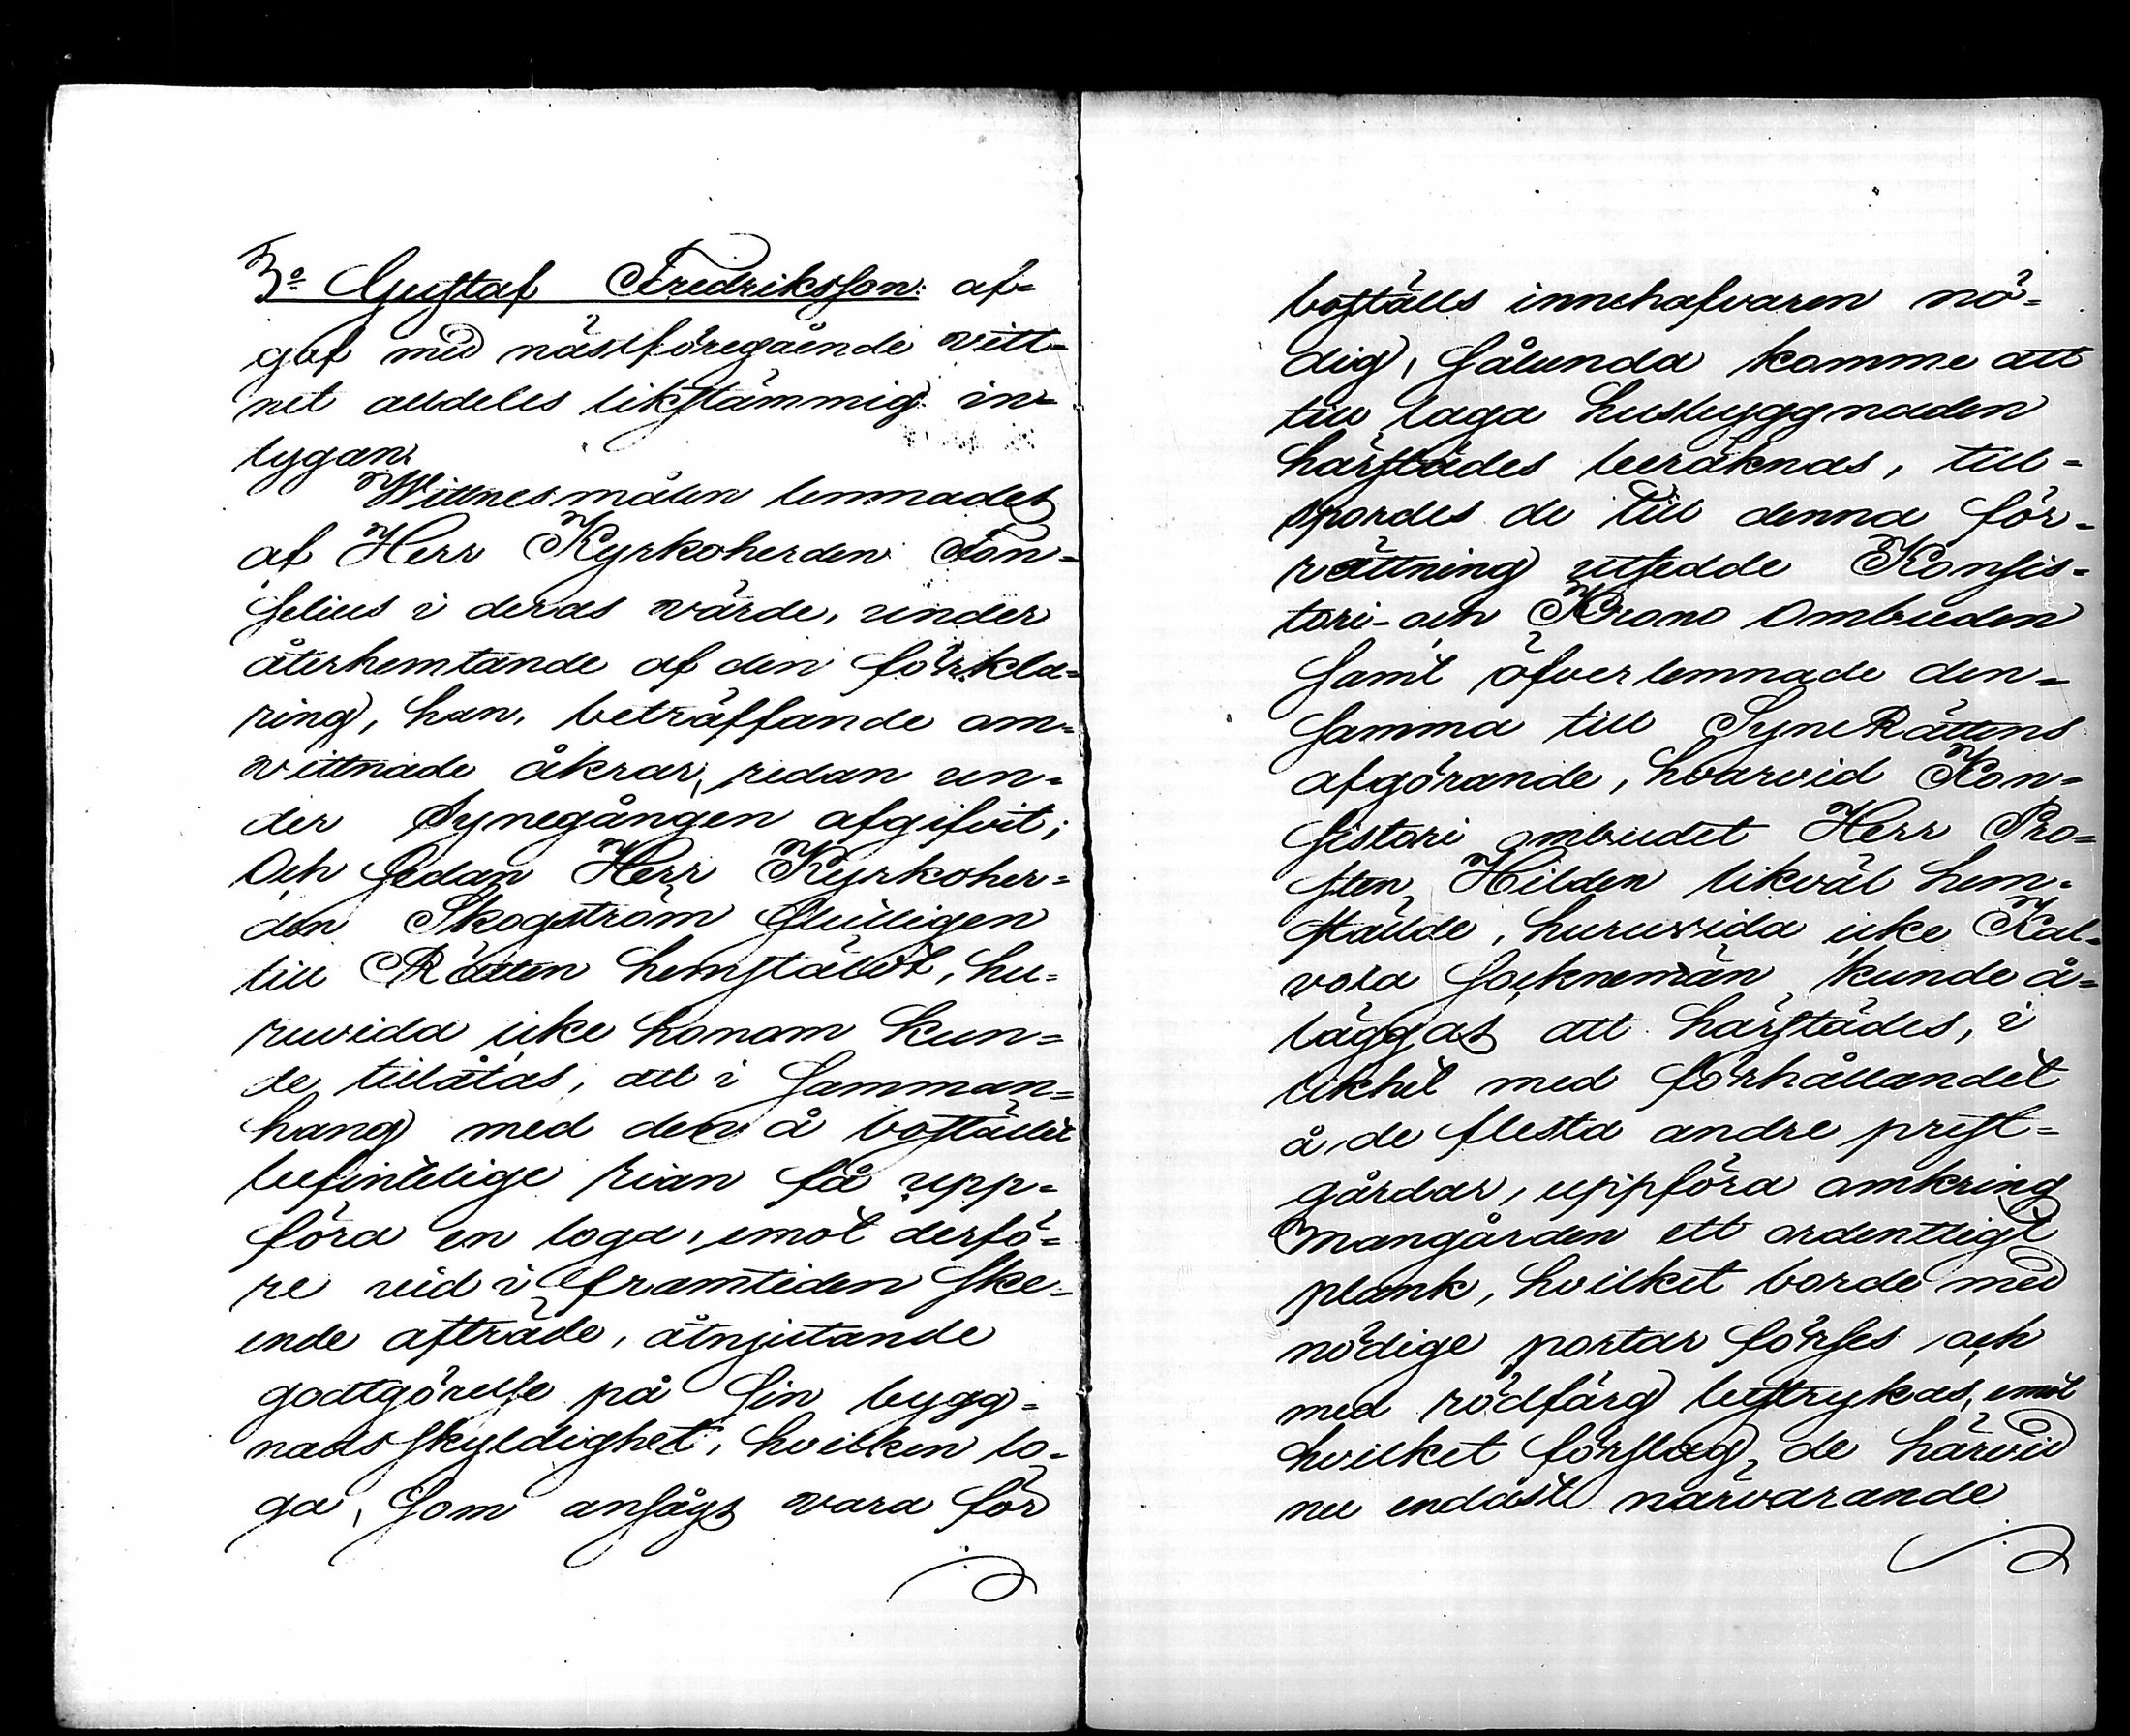 3:o Gustaf Fredriksson: af=
gaf med nästföregående vitt=
net alldeles likstämmig in=
tygan.
Wittnesmålen lemnades
af Herr Kyrkoherden Ton=
selius i deras värde, under
återhemtande af den förkla=
ring, han, beträffande om=
vittnade åkrar, redan un=
der Synegången afgifvit;
Och sedan Herr Kyrkoher=
den Skogström slutligen
till Rätten hemstält, hu=
ruvida icke honom kun=
de tillåtas, att i samman=
hang med den å bostället
befintelige rian få upp=
föra en loga, emot derfö=
re vid i framtiden ske=
ende afträde, åtnjutande
godtgörelse på sin bygg=
nadsskyldighet, hvilken lo=
ga, som ansågs vara för
boställs innehafvaren nö=
dig, sålunda komme att
till laga husbyggnaden
härstädes beräknas, till=
spordes de till denna för=
rättning utsedde Konsis=
tori- och Krono Ombuden
samt öfverlemnade den=
samma till SyneRättens
afgörande, hvarvid Kon=
sistori ombudet Herr Pro=
sten Hilden likväl hem=
stälde, huruvida icke Kal=
vola socknemän kunde å=
läggas att härstädes, i
likhet med förhållandet
å de flesta andre prest=
gårdar, uppföra omkring
mangården ett ordentligt
plank, hvilket borde med
nödige portar förses och
med rödfärg bestrykas, emot
hvilket förslag, de härvid
nu endast närvarande